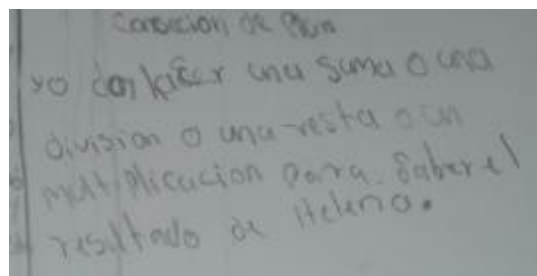 de Plan
yo con hacer una suma o una
division o una resta o un
multiplicacion para saber el
resultado de Helena.